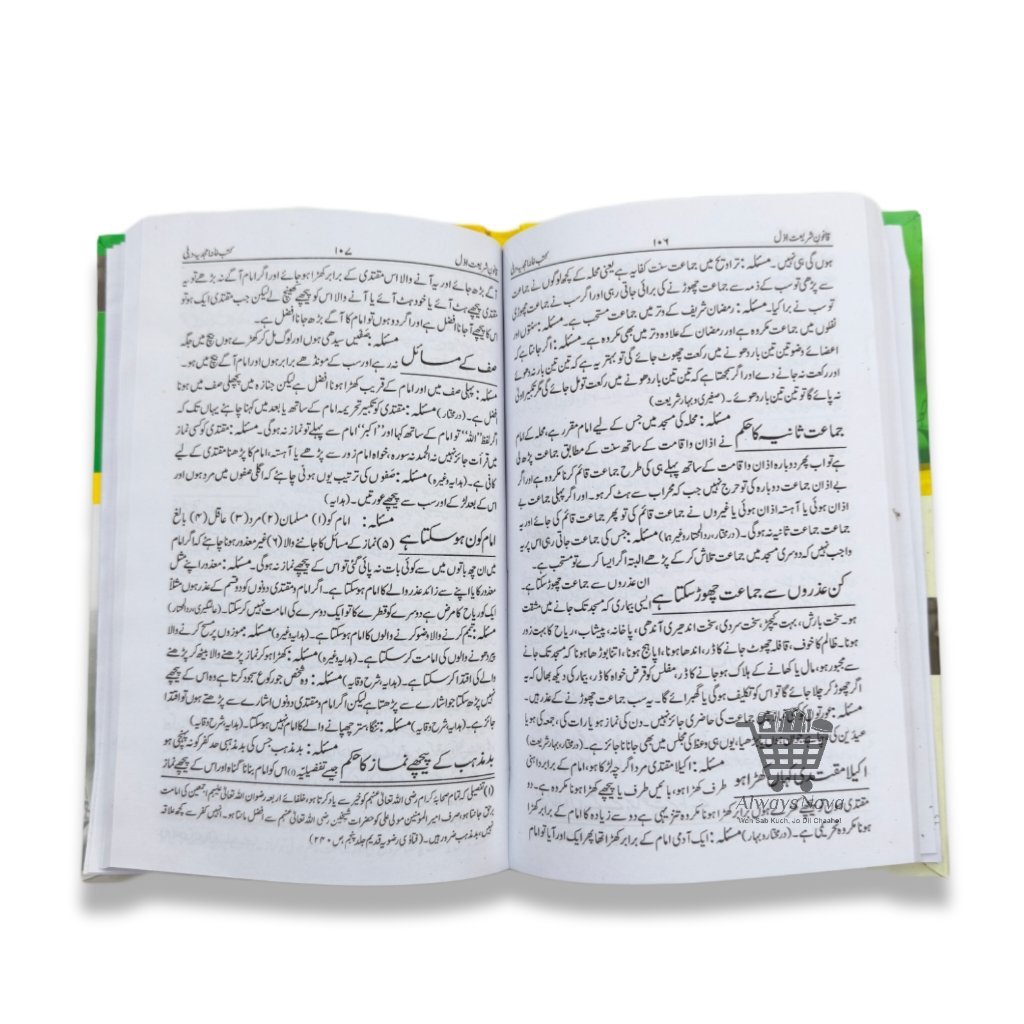 قانون شریعت اوّل ۱۰۶ کتب خانہ امجدیہ دہلی
ہوں گی ہی نہیں۔ مسئلہ: تراویح میں جماعت سنت کفایہ ہے یعنی محلہ کے کچھ لوگوں نے جماعت
سے پڑھی تو سب کے ذمہ سے جماعت چھوڑنے کی برائی جاتی رہی اور اگر سب نے جماعت چھوڑی
تو سب نے برا کیا۔ مسئلہ: رمضان شریف کے وتر میں جماعت مستحب ہے۔ مسئلہ: سنتوں اور
نفلوں میں جماعت مکروہ ہے اور رمضان کے علاوہ وتر میں بھی مکروہ ہے۔ مسئلہ: اگر جانتا ہے کہ
اعضائے وضو تین تین بار دھونے میں رکعت چھوٹ جائے گی تو بہتر یہ ہے کہ تین تین بار نہ دھوئے
اور رکعت نہ جانے دے اور اگر سمجھتا ہے کہ تین تین بار دھونے میں رکعت تو مل جائے گی مگر تکبیر اولیٰ
نہ پائے گا تو تین تین بار دھوئے۔ (صغیری و بہار شریعت)
جماعت ثانیہ کا حکم مسئلہ: محلہ کی مسجد میں جس کے لیے امام مقرر ہے، محلہ کے امام
نے اذان و اقامت کے ساتھ سنت کے مطابق جماعت پڑھ لی
ہے تو اب پھر دوبارہ اذان و اقامت کے ساتھ پہلے ہی کی طرح جماعت قائم کرنا مکروہ ہے اور اگر
بے اذان جماعت دوبارہ کی تو حرج نہیں جب کہ محراب سے ہٹ کر ہو۔ اور اگر پہلی جماعت بے
اذان ہوئی یا آہستہ اذان ہوئی یا غیروں نے جماعت قائم کی تو پھر جماعت قائم کی جائے اور یہ
جماعت جماعت ثانیہ نہ ہوگی۔ (درمختار، ردالمحتار وغیرہما) مسئلہ: جس کی جماعت جاتی رہی اس پر یہ
واجب نہیں کہ دوسری مسجد میں جماعت تلاش کر کے پڑھے البتہ اگر ایسا کرے تو مستحب ہے۔
کن عذروں سے جماعت چھوڑ سکتا ہے ان عذروں سے جماعت چھوڑ سکتا ہے۔
ایسی بیماری کہ مسجد تک جانے میں مشقت
ہو۔ سخت بارش، بہت کیچڑ، سخت سردی، سخت اندھیری آندھی، پاخانہ، پیشاب، ریاح کا بہت زور
ہونا۔ ظالم کا خوف، قافلہ چھوٹ جانے کا ڈر، اندھا ہونا، اپاہج ہونا، اتنا بوڑھا ہونا کہ مسجد تک جانے
سے مجبور ہو، مال یا کھانے کے ہلاک ہو جانے کا ڈر، مفلس کو قرض خواہ کا ڈر، بیمار کی دیکھ بھال کہ یہ
اگر چھوڑ کر چلا جائے گا تو اس کو تکلیف ہوگی یا گھبرائے گا۔ یہ سب جماعت چھوڑنے کے عذر ہیں۔
مسئلہ: عورتوں کو کسی نماز میں جماعت کی حاضری جائز نہیں۔ دن کی نماز ہو یا رات کی، جمعہ کی ہو یا
عیدین کی بڑھیا، یوں ہی وعظ کی مجلس میں بھی جانا ناجائز ہے۔ (درمختار، بہار شریعت)
اکیلا مقتدی کہاں کھڑا ہو مسئلہ: اکیلا مقتدی مرد اگرچہ لڑکا ہو، امام کے برابر داہنی
طرف کھڑا ہو، بائیں طرف یا پیچھے کھڑا ہونا مکروہ ہے۔ دو
مقتدی ہونا مکروہ تنزیہی ہے دو سے زیادہ کا امام کے برابر کھڑا
ہونا مکروہ تحریمی ہے۔ (درمختار، بہار) مسئلہ: ایک آدمی امام کے برابر کھڑا تھا پھر ایک اور آیا تو امام
Always Nova
Woh Sab Kuch, Jo Dil Chaahe!
قانون شریعت اوّل ۱۰۷ کتب خانہ امجدیہ دہلی
آگے بڑھ جائے اور یہ آنے والا اس مقتدی کے برابر کھڑا ہو جائے اور اگر امام آگے نہ بڑھے تو یہ
مقتدی پیچھے ہٹ آئے یا خود ہٹ آئے یا آنے والا اس کو پیچھے کھینچ لے لیکن جب مقتدی ایک ہو تو
اس کا پیچھے آ جانا افضل ہے اور اگر دو ہوں تو امام کا آگے بڑھ جانا افضل ہے۔
صف کے مسائل مسئلہ: صفیں سیدھی ہوں اور لوگ مل کر کھڑے ہوں بیچ میں جگہ
نہ رہے اور سب کے مونڈھے برابر ہوں اور امام آگے بیچ میں ہو۔
مسئلہ: پہلی صف میں اور امام کے قریب کھڑا ہونا افضل ہے لیکن جنازہ میں پچھلی صف میں ہونا
افضل ہے۔ (درمختار) مسئلہ: مقتدی کو تکبیر تحریمہ امام کے ساتھ یا بعد میں کہنا چاہئے یہاں تک کہ
اگر لفظ "اللہ" تو امام کے ساتھ کہا اور "اکبر" امام سے پہلے تو نماز نہ ہوگی۔ مسئلہ: مقتدی کو کسی نماز
میں قرأت جائز نہیں نہ الحمد نہ سورہ، خواہ امام زور سے پڑھے یا آہستہ، امام کا پڑھنا مقتدی کے لیے
کافی ہے۔ (ہدایہ وغیرہ) مسئلہ: صفوں کی ترتیب یوں ہونی چاہئے کہ اگلی صفوں میں مرد ہوں اور
اس کے بعد لڑکے اور سب سے پیچھے عورتیں۔ (ہدایہ)
امام کون ہو سکتا ہے مسئلہ: امام کو (۱) مسلمان (۲) مرد (۳) عاقل (۴) بالغ
(۵) نماز کے مسائل کا جاننے والا (۶) غیر معذور ہونا چاہئے کہ اگر امام
میں ان چھ باتوں میں سے کوئی بات نہ پائی گئی تو اس کے پیچھے نماز نہ ہوگی۔ مسئلہ: معذور اپنے مثل
معذور کا یا اپنے سے زائد عذر والے کا امام ہو سکتا ہے۔ اگر امام و مقتدی دونوں کو دو قسم کے عذر ہوں مثلاً
ایک کو ریاح کا مرض ہے دوسرے کو قطرے کا تو ایک دوسرے کی امامت نہیں کر سکتا۔ (عالمگیری، ردالمحتار)
مسئلہ: تیمم کرنے والا وضو کرنے والوں کا امام ہو سکتا ہے۔ (ہدایہ وغیرہ) مسئلہ: موزوں پر مسح کرنے والا
پیر دھونے والوں کی امامت کر سکتا ہے۔ (ہدایہ وغیرہ) مسئلہ: کھڑا ہو کر نماز پڑھنے والا بیٹھ کر پڑھنے
والے کی اقتدا کر سکتا ہے۔ (ہدایہ، شرح وقایہ) مسئلہ: وہ شخص جو رکوع سجود کرتا ہے وہ اس کے پیچھے
نہیں پڑھ سکتا جو اشارے سے پڑھتا ہے لیکن اگر امام و مقتدی دونوں اشارے سے پڑھتے ہوں تو اقتدا
جائز ہے۔ (ہدایہ شرح وقایہ) مسئلہ: ننگا ستر چھپانے والے کا امام نہیں ہو سکتا۔ (ہدایہ شرح وقایہ)
بد مذہب کے پیچھے نماز کا حکم مسئلہ: بد مذہب جس کی بد مذہبی حد کفر کو نہ پہنچی ہو
جیسے تفضیلیہ (۱) اس کو امام بنانا گناہ اور اس کے پیچھے نماز
(۱) تفضیلی کہ تمام صحابہ کرام رضی اللہ تعالیٰ عنہم کو خیر سے یاد کرتا ہو، خلفائے اربعہ رضوان اللہ تعالیٰ علیہم اجمعین کی امامت
برحق جانتا ہو، صرف امیر المومنین مولیٰ علی کو حضرات شیخین رضی اللہ تعالیٰ عنہم سے افضل مانتا ہو۔ انہیں کفر سے کچھ علاقہ
نہیں، بد مذہب ضرور ہیں۔ (فتاویٰ رضویہ قدیم جلد پنجم، ص ۲۳۰)